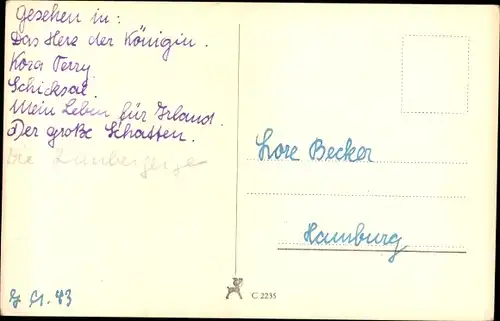 Gesehen in:
Das Herz der Königin.
Kora Terry.
Schicksal.
Mein Leben für Irland.
Der große Schatten.
Die
Lore Becker
Hamburg
C 2235